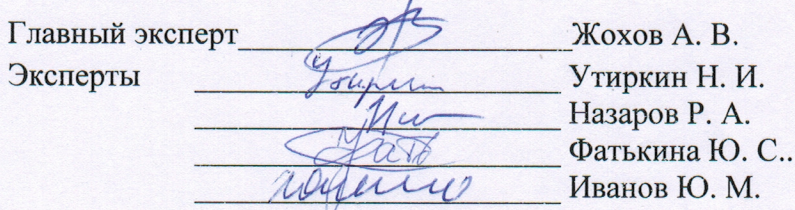 Главный эксперт Жохов А. В.
Эксперты Утиркин Н. И.
Назаров Р. А.
Фатькина Ю. С..
Иванов Ю. М.